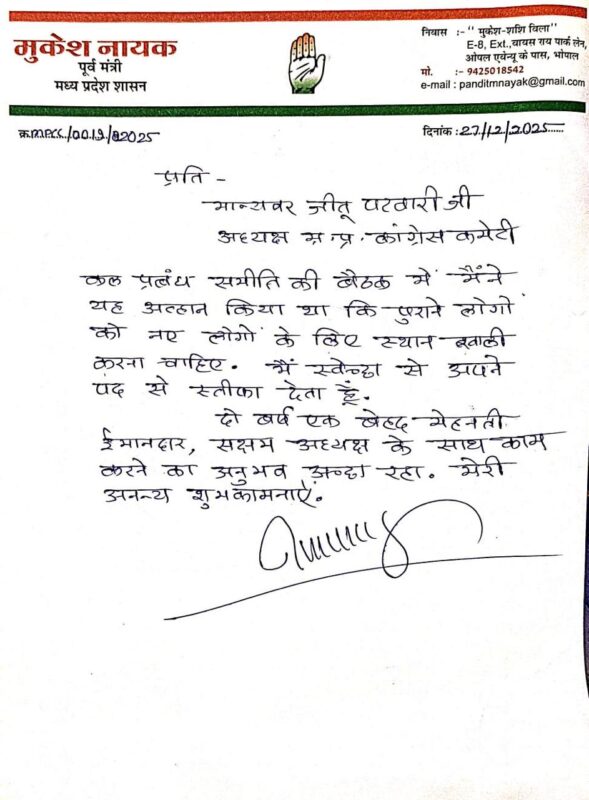 मुकेश नायक
पूर्व मंत्री
मध्य प्रदेश शासन
निवास :- " मुकेश-शशि विला"
E-8, Ext.,वायस राय पार्क लेन,
ओपल एवेन्यू के पास, भोपाल
मो. :- 9425018542
e-mail : panditmnayak@gmail.com
क्र.MPCC/0019/2025
दिनांक :27/12/2025......
प्रति -
मान्यवर जीतू पटवारी जी
अध्यक्ष म.प्र. कांग्रेस कमेटी
कल प्रबंध समीति की बैठक में मैंने
यह अव्हान किया था कि पुराने लोगों
को नए लोगों के लिए स्थान खाली
करना चाहिए. मैं स्वेच्छा से अपने
पद से स्तीफा देता हूँ.
दो वर्ष एक बेहद मेहनती
ईमानदार, सक्षम अध्यक्ष के साथ काम
करने का अनुभव अच्छा रहा. मेरी
अनन्य शुभकामनाऐं.